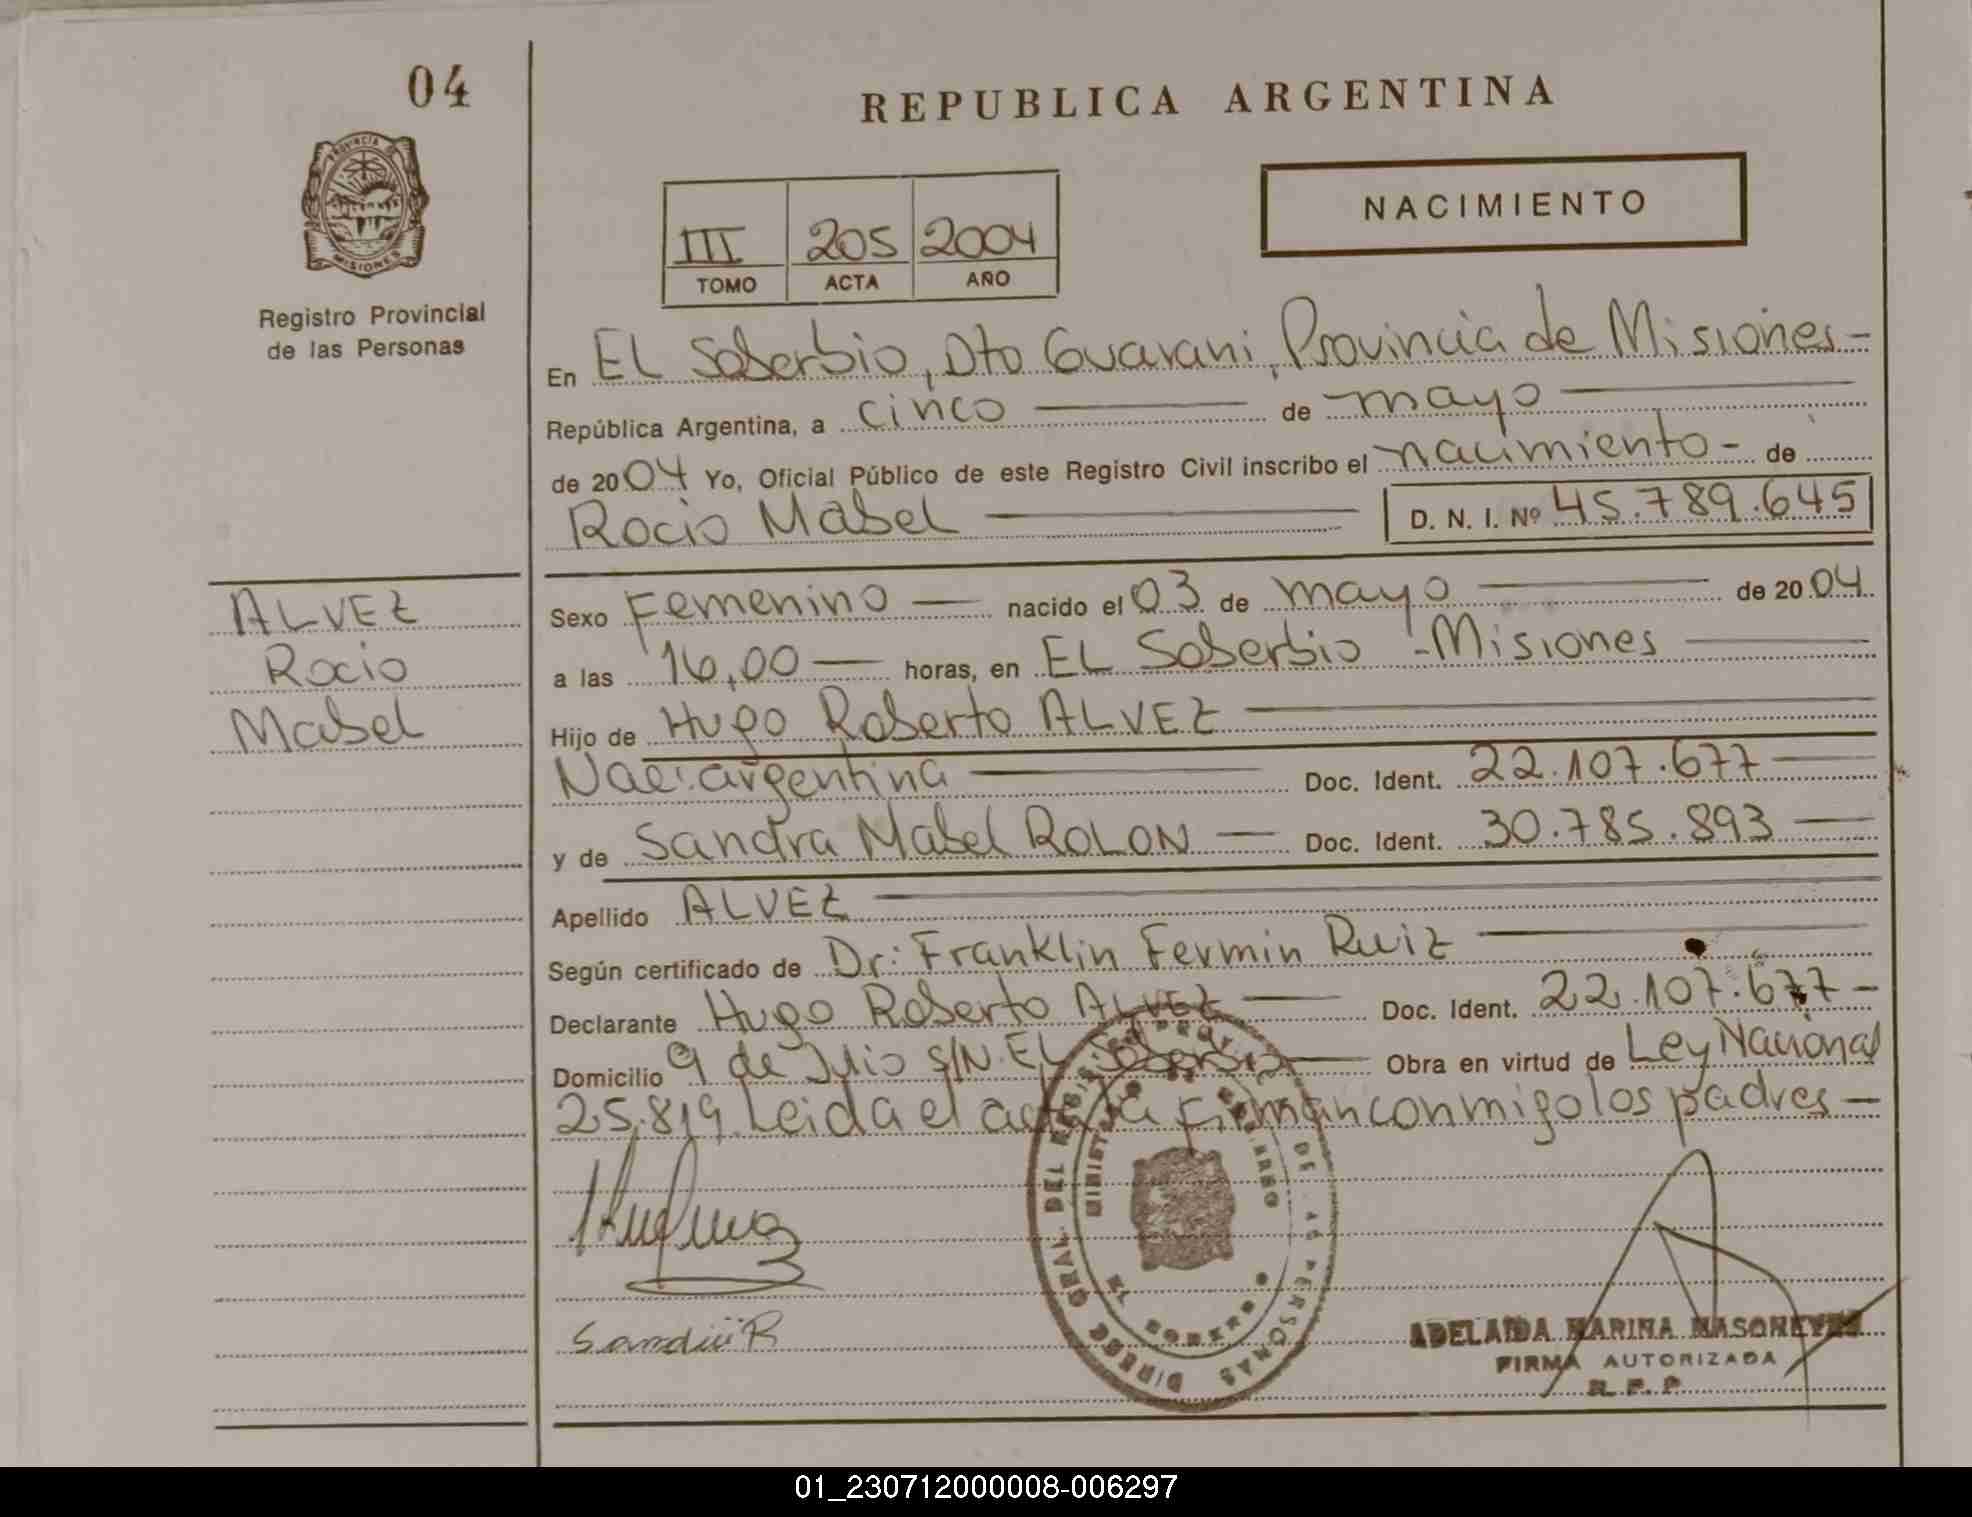 04
REPUBLICA ARGENTINA
PROVINCIA DE
MISIONES
Registro Provincial
de las Personas
III 205 2004
TOMO ACTA AÑO
NACIMIENTO
En EL Soberbio, Dto Guarani, Provincia de Misiones-
República Argentina, a cinco de mayo
de 2004 Yo, Oficial Público de este Registro Civil inscribo el nacimiento - de
Rocio Mabel D. N. I. Nº 45.789.645
ALVEZ
Rocio
Mabel
Sexo Femenino nacido el 03 de mayo de 2004
a las 16,00 horas, en EL Soberbio - Misiones
Hijo de Hugo Roberto ALVEZ
Nac: argentina Doc. Ident. 22.107.677
y de Sandra Mabel ROLON Doc. Ident. 30.785.893
Apellido ALVEZ
Según certificado de Dr: Franklin Fermin Ruiz
Declarante Hugo Roberto ALVEZ Doc. Ident. 22.107.677-
Domicilio 9 de Julio S/N. EL Soberbio Obra en virtud de Ley Nacional
25.819. Leida el acta la firman conmigo los padres
Sandra R
ADELAIDA MARINA
FIRMA AUTORIZADA
R. P. P
01_230712000008-006297